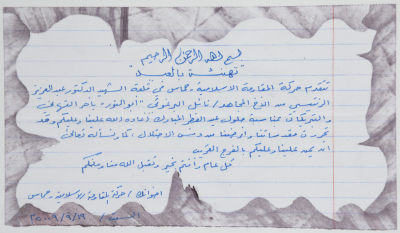 بسم الله الرحمن الرحيم
تهنئة بالعيد
تتقدم حركة المقاومة الاسلامية حماس في قلعة الشهيد الدكتور عبد العزيز
الرنتيسي من الأخ المجاهد / نائل البرغوثي "أبو النور" بأحر التهاني
والتبريكات بمناسبة حلول عيد الفطر المبارك أعاده الله علينا وعليكم وقد
تحررت مقدساتنا وأرضنا من دنس الاحتلال، كما ونسأله تعالى
ان يمن علينا وعليكم بالفرج القريب
كل عام وأنتم بخير وتقبل الله منا ومنكم
اخوانك / حركة المقاومة الاسلامية حماس
السبت / ١٩/٩/٢٠٠٩